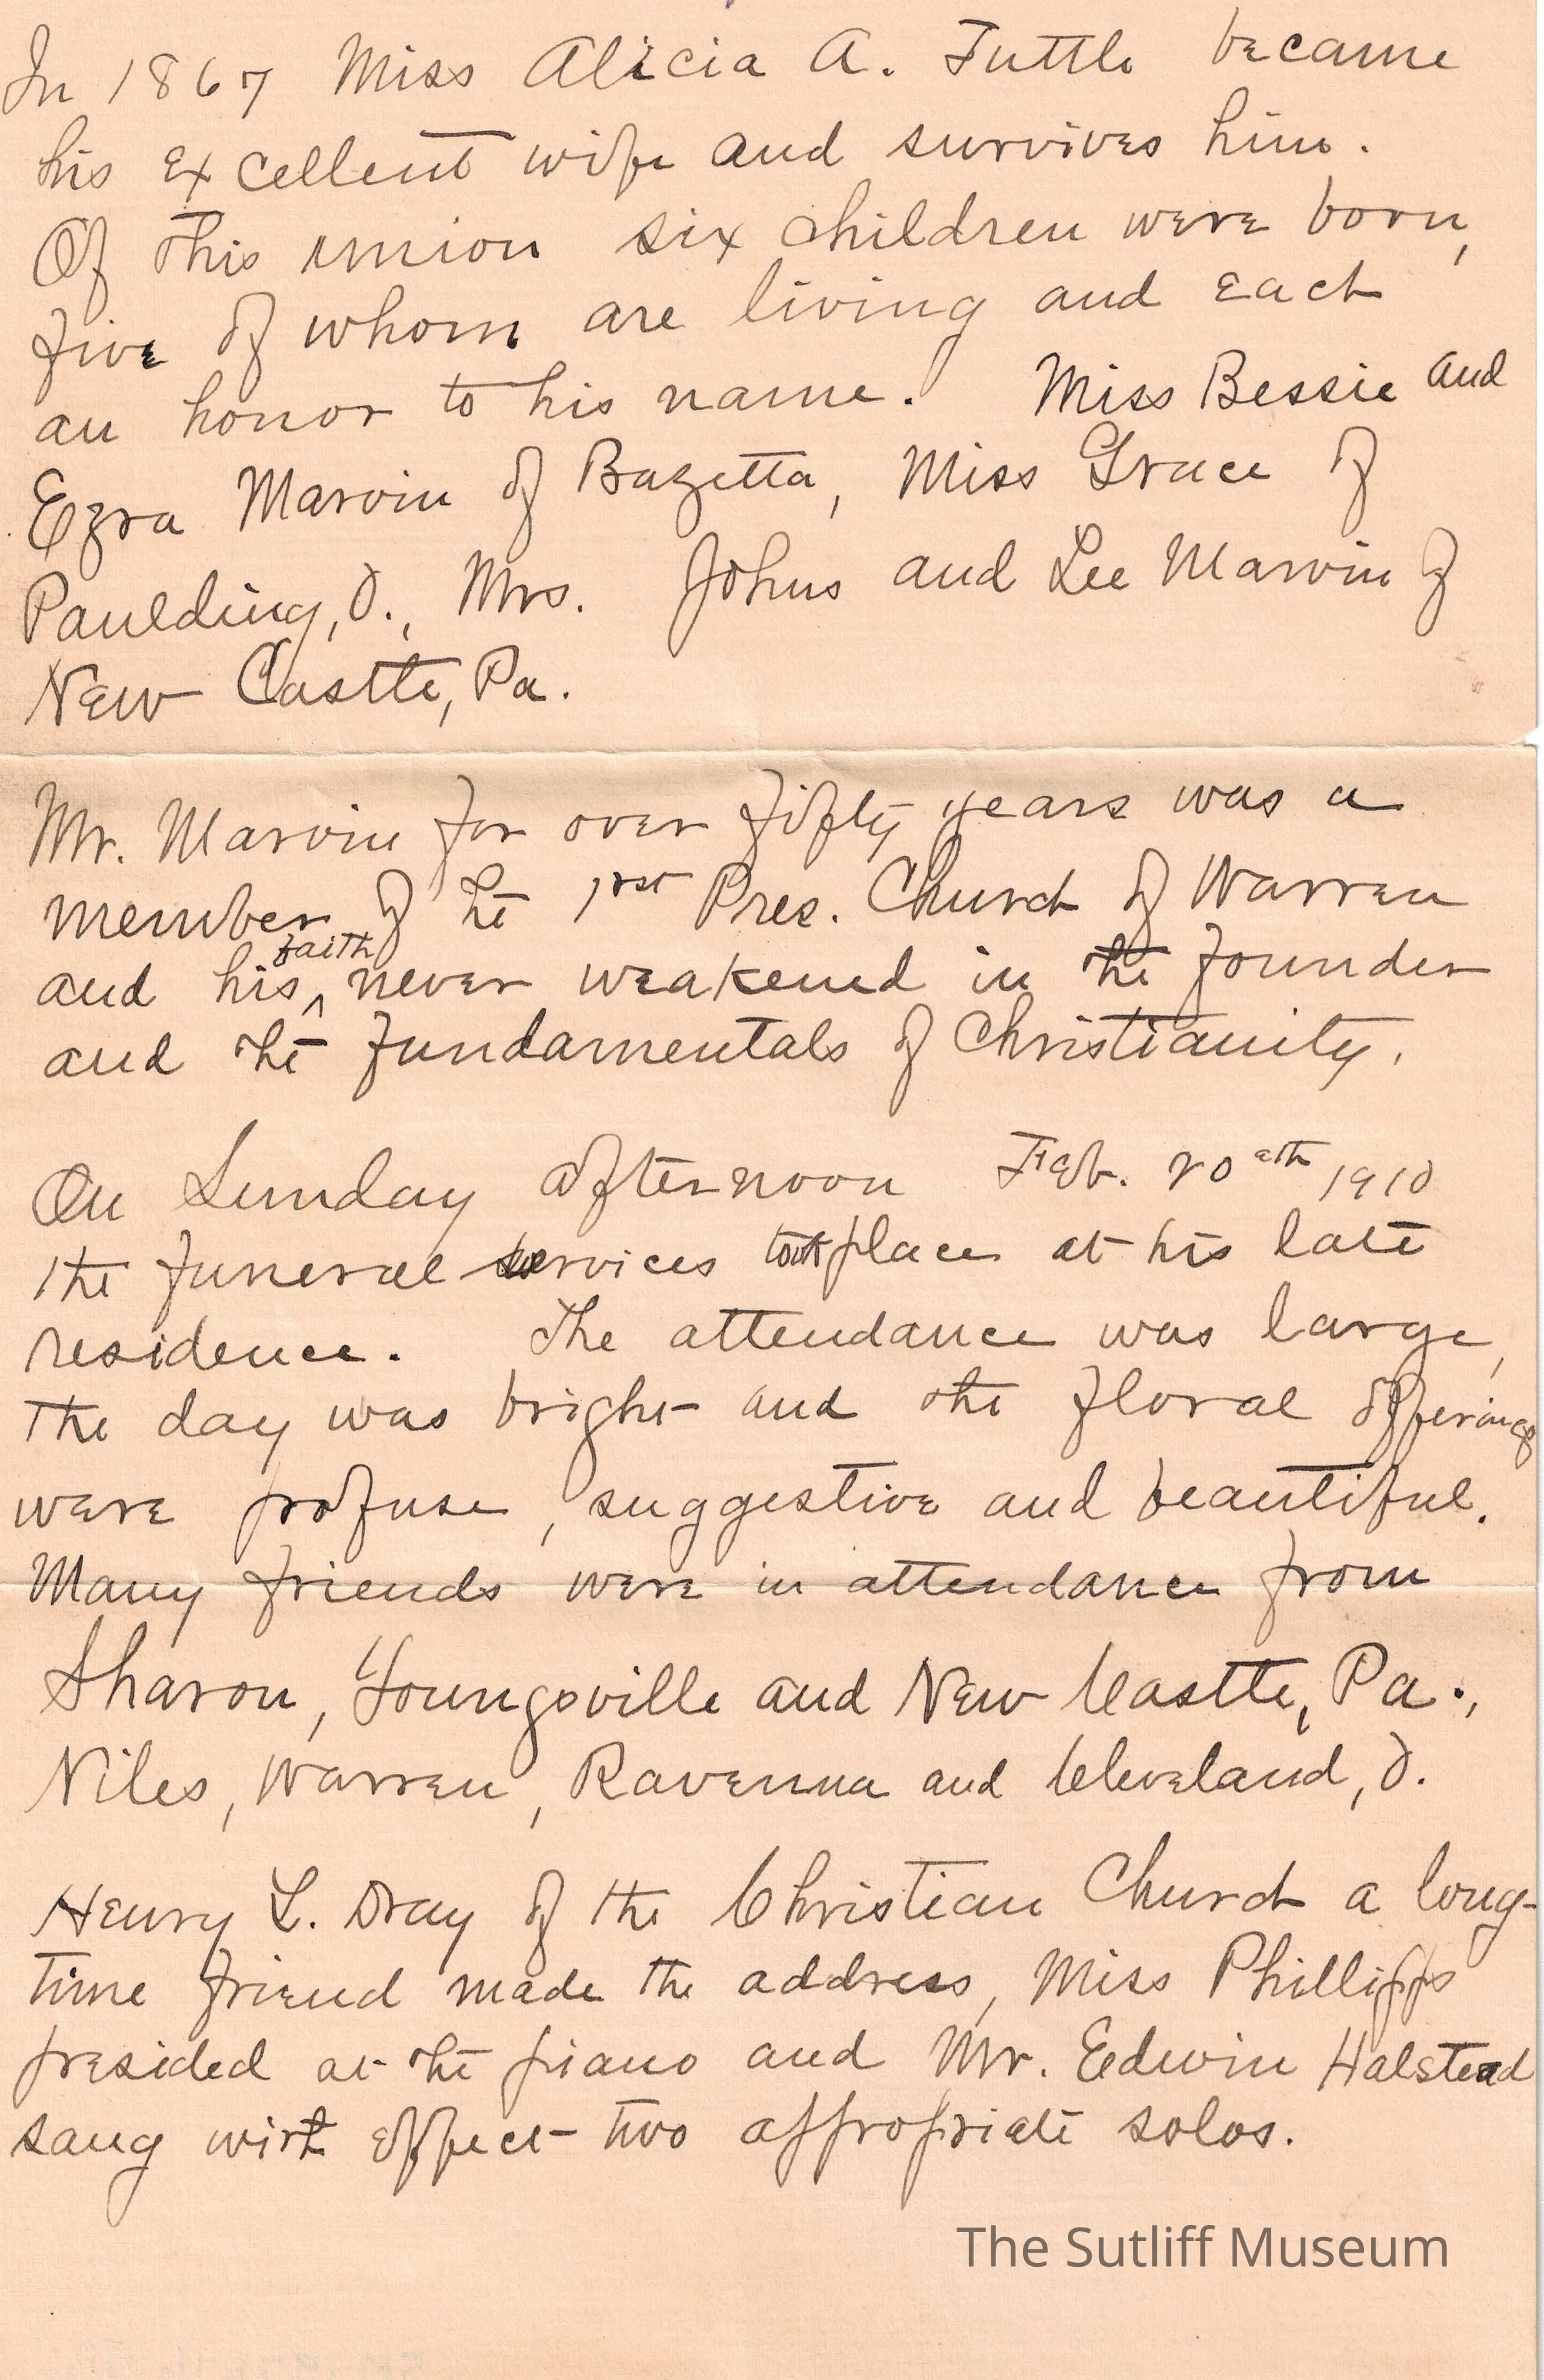 In 1867 Miss Alicia A. Tuttle became
his excellent wife and survives him.
Of this union six children were born,
five of whom are living and each
an honor to his name. Miss Bessie and
Ezra Marvin of Bazetta, Miss Grace of
Paulding, O., Mrs. Johns and Lee Marvin of
New Castle, Pa.
Mr. Marvin for over fifty years was a
member of the 1rst Pres. Church of Warren
and his faith never weakened in the founder
and the fundamentals of Christianity.
On Sunday afternoon Feb. 20eth 1910
the funeral services took place at his late
residence. The attendance was large,
the day was bright and the floral offerings
were profuse, suggestive and beautiful.
Many friends were in attendance from
Sharon, Youngsville and New Castle, Pa.,
Niles, Warren, Ravenna and Cleveland, O.
Henry L. Dray of the Christian Church a long-
time friend made the address, Miss Phillipps
presided at the piano and Mr. Edwin Halstead
sang with effect two appropriate solos.
The Sutliff Museum